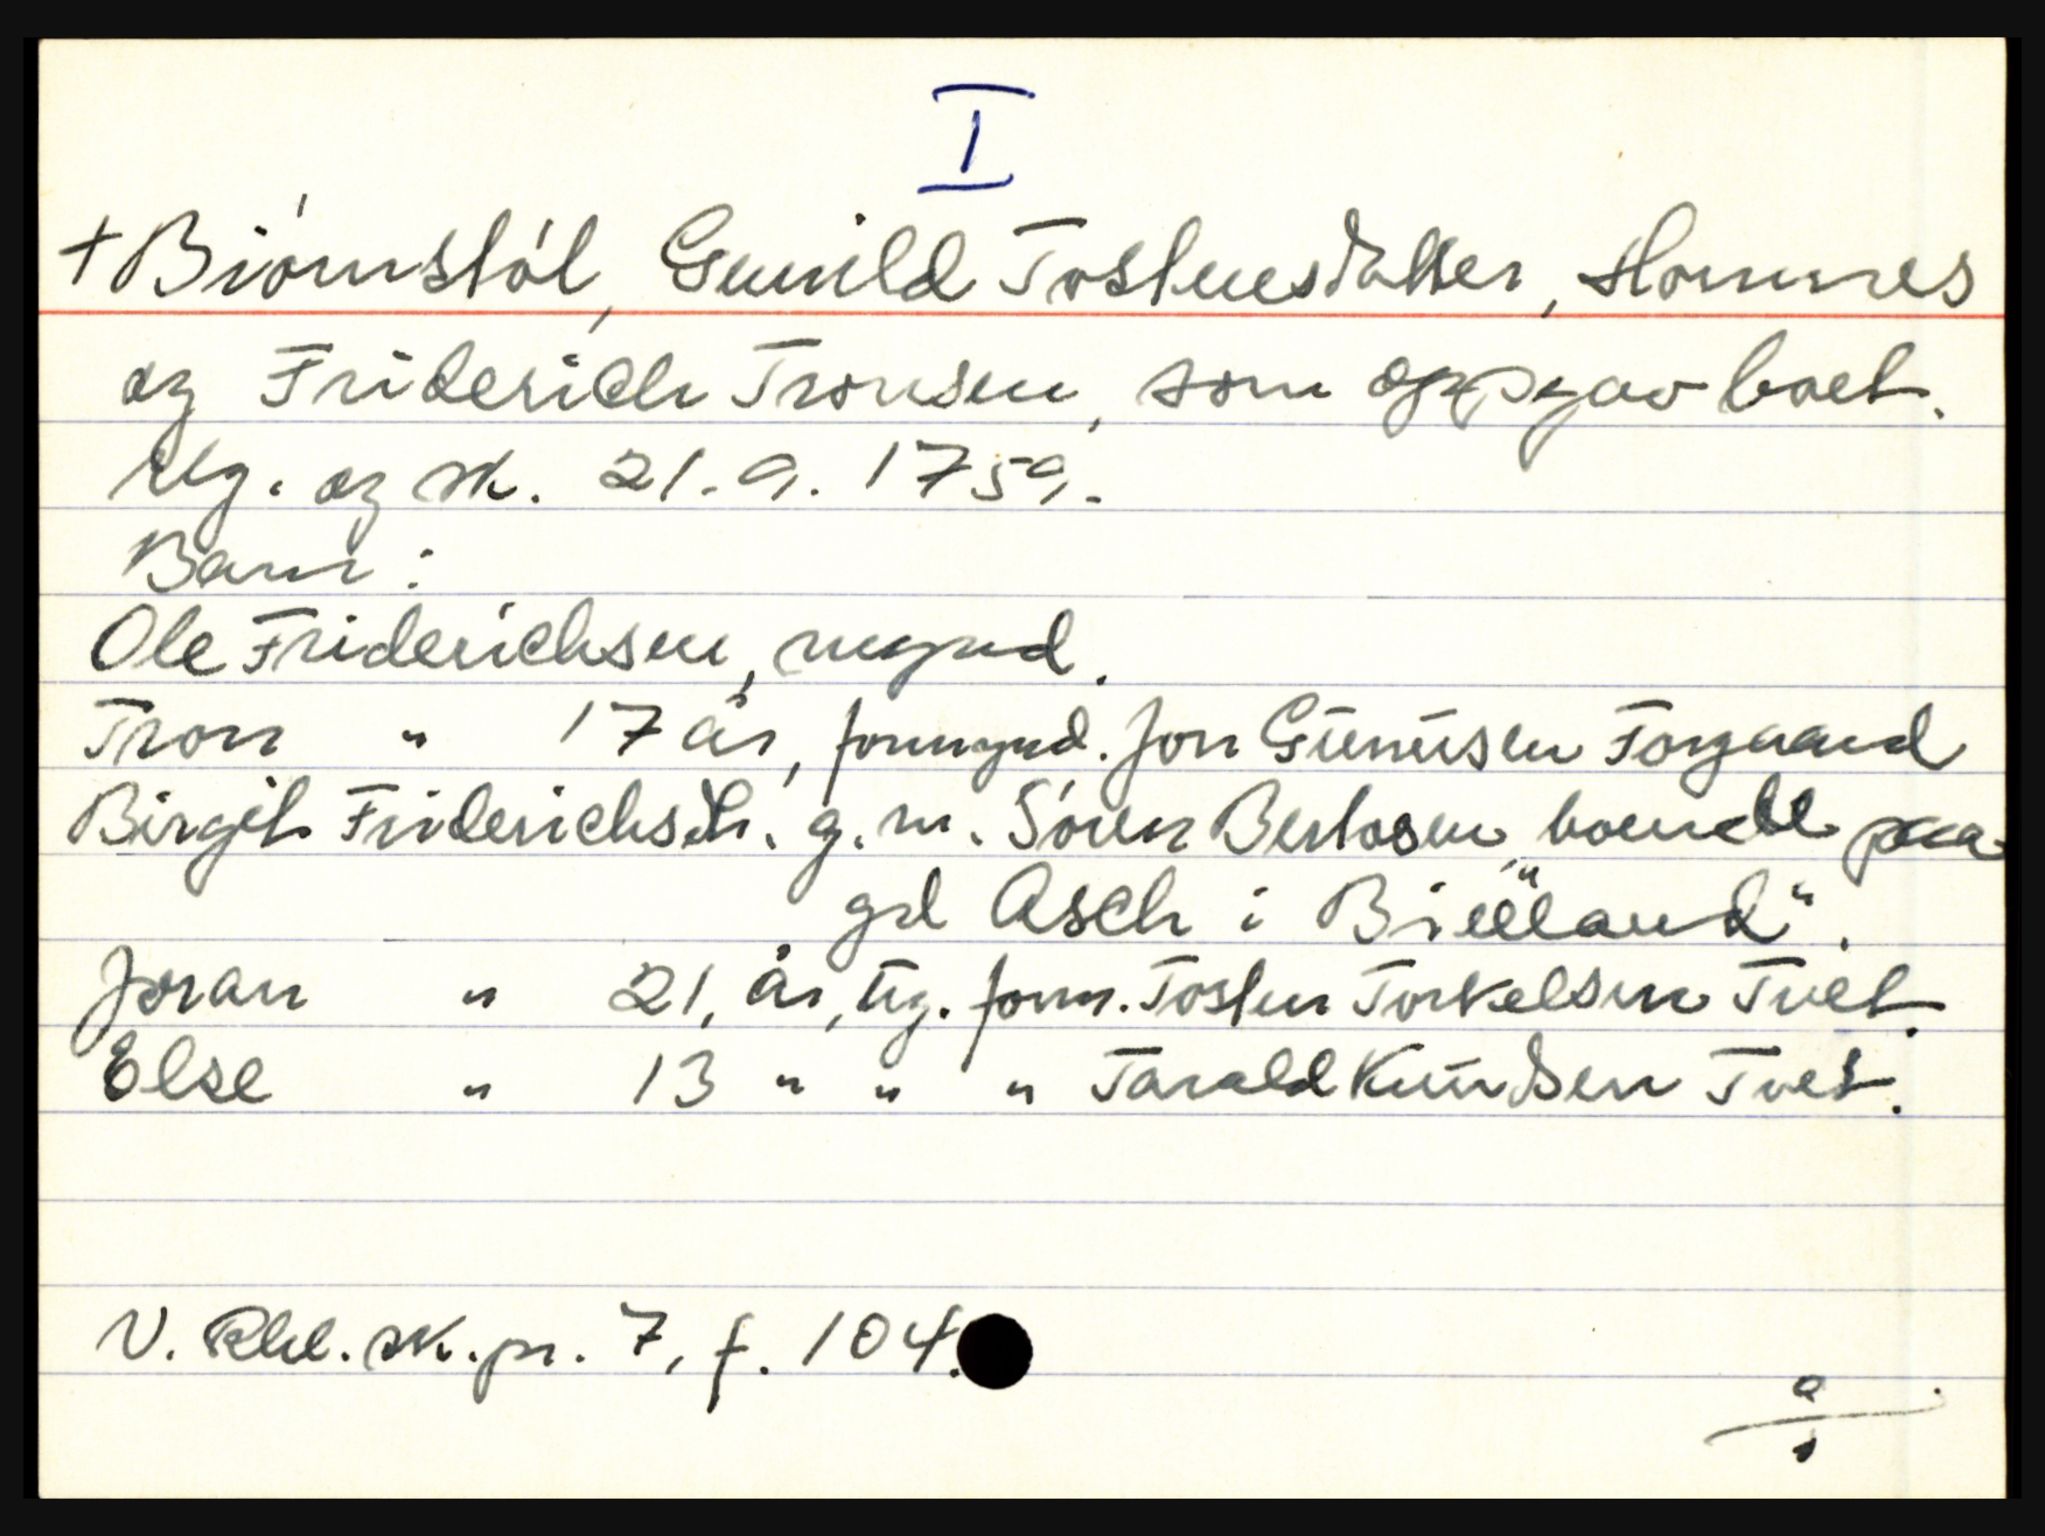 I
+ Biórnstól, Gunild Tostensdatter, Hornnes
og Friderich Tronsen, som oppgav boet.
Reg. og sk. 21.9.1759.
Barn:
Ole Friderichsen, mynd.
Tron " 17 år, formynd. Jon Gúnúsen Forgaard
Birgit Friderichsdtr. g.m. Sóren Berlosen, boende paa
gd Asch i "Biелland".
Joran " 21, år, ūg. form. Tosten Torkelsen Tvet.
Else " 13 " " " Tarald Knūdsen Tvet.
V. Rbl. sk.pr. 7, f. 104.